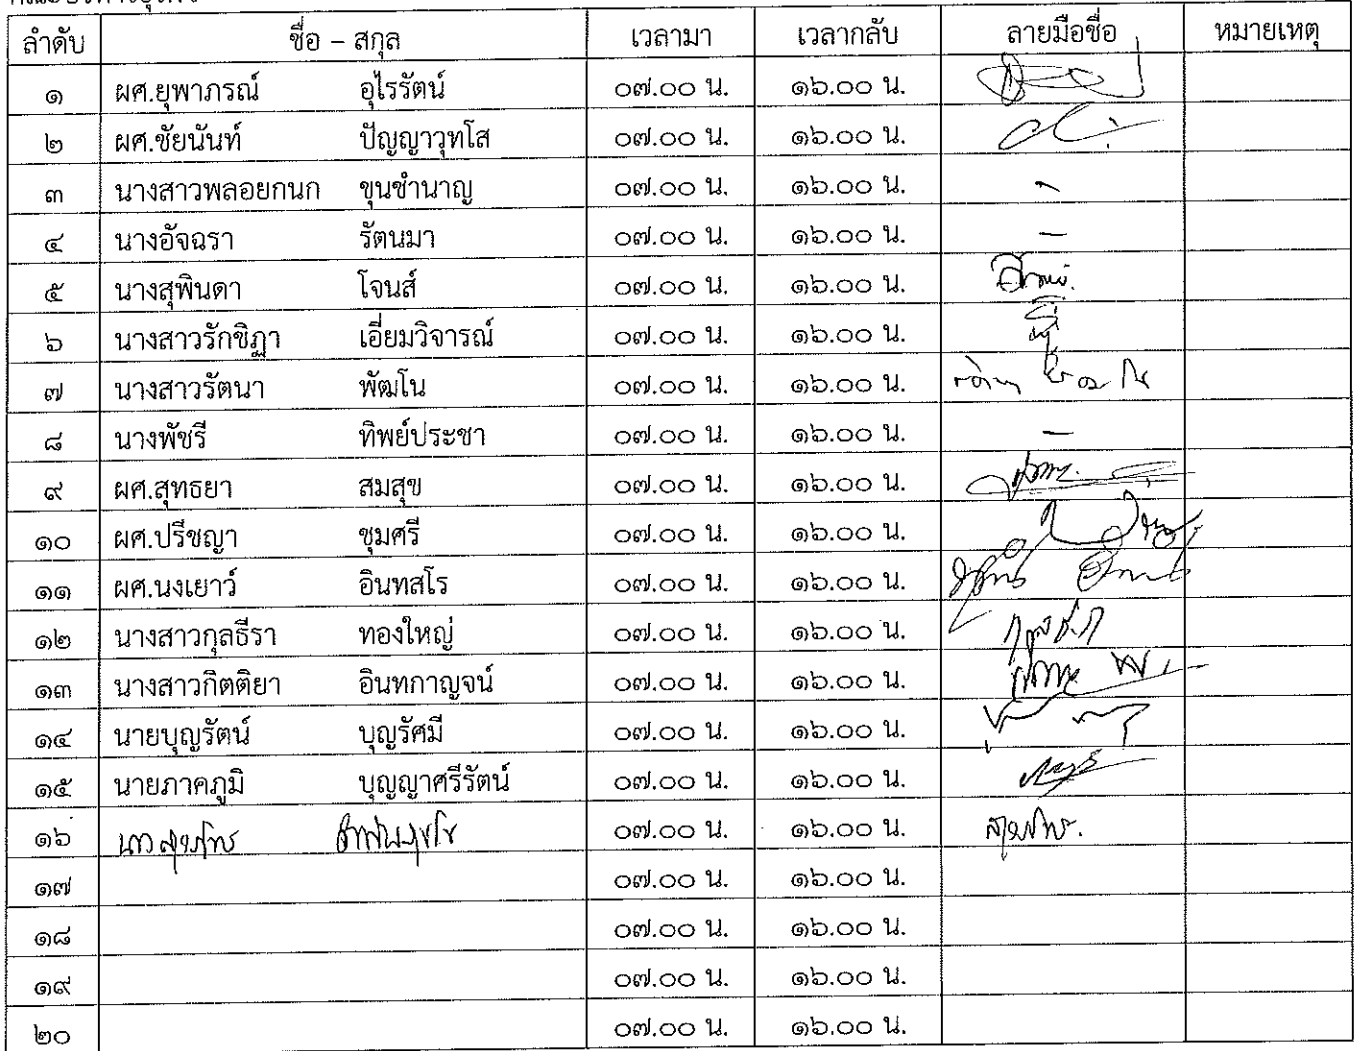 ลำดับ ชื่อ – สกุล เวลามา เวลากลับ ลายมือชื่อ หมายเหตุ
๑ ผศ.ยุพาภรณ์ อุไรรัตน์ ๐๗.๐๐ น. ๑๖.๐๐ น.
๒ ผศ.ชัยนันท์ ปัญญาวุทโส ๐๗.๐๐ น. ๑๖.๐๐ น.
๓ นางสาวพลอยกนก ขุนชำนาญ ๐๗.๐๐ น. ๑๖.๐๐ น.
๔ นางอัจฉรา รัตนมา ๐๗.๐๐ น. ๑๖.๐๐ น. –
๕ นางสุพินดา โจนส์ ๐๗.๐๐ น. ๑๖.๐๐ น.
๖ นางสาวรักขิฏา เอี่ยมวิจารณ์ ๐๗.๐๐ น. ๑๖.๐๐ น.
๗ นางสาวรัตนา พัฒโน ๐๗.๐๐ น. ๑๖.๐๐ น.
๘ นางพัชรี ทิพย์ประชา ๐๗.๐๐ น. ๑๖.๐๐ น. –
๙ ผศ.สุทธยา สมสุข ๐๗.๐๐ น. ๑๖.๐๐ น.
๑๐ ผศ.ปรีชญา ชุมศรี ๐๗.๐๐ น. ๑๖.๐๐ น.
๑๑ ผศ.นงเยาว์ อินทสโร ๐๗.๐๐ น. ๑๖.๐๐ น.
๑๒ นางสาวกุลธีรา ทองใหญ่ ๐๗.๐๐ น. ๑๖.๐๐ น.
๑๓ นางสาวกิตติยา อินทกาญจน์ ๐๗.๐๐ น. ๑๖.๐๐ น.
๑๔ นายบุญรัตน์ บุญรัศมี ๐๗.๐๐ น. ๑๖.๐๐ น.
๑๕ นายภาคภูมิ บุญญาศรีรัตน์ ๐๗.๐๐ น. ๑๖.๐๐ น.
๑๖ ๐๗.๐๐ น. ๑๖.๐๐ น.
๑๗ ๐๗.๐๐ น. ๑๖.๐๐ น.
๑๘ ๐๗.๐๐ น. ๑๖.๐๐ น.
๑๙ ๐๗.๐๐ น. ๑๖.๐๐ น.
๒๐ ๐๗.๐๐ น. ๑๖.๐๐ น.